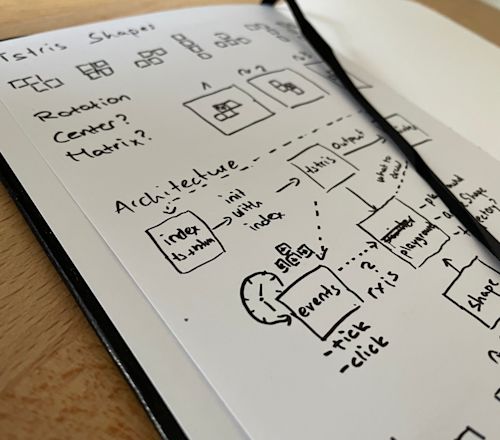 Tstris Shapes
Rotation
Center?
Matrix?
?
Architecture
index
init
with
index
tstris
output
what to
draw
playground
events
-tick
-click
?
rxjs
shape